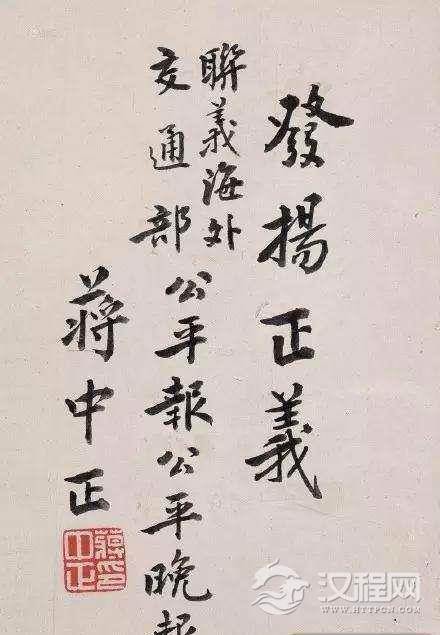 發揚正義
聯義海外
交通部
公平報公平晚報
蔣中正
蔣中正印
汉程网
WWW.HTTPCN.COM